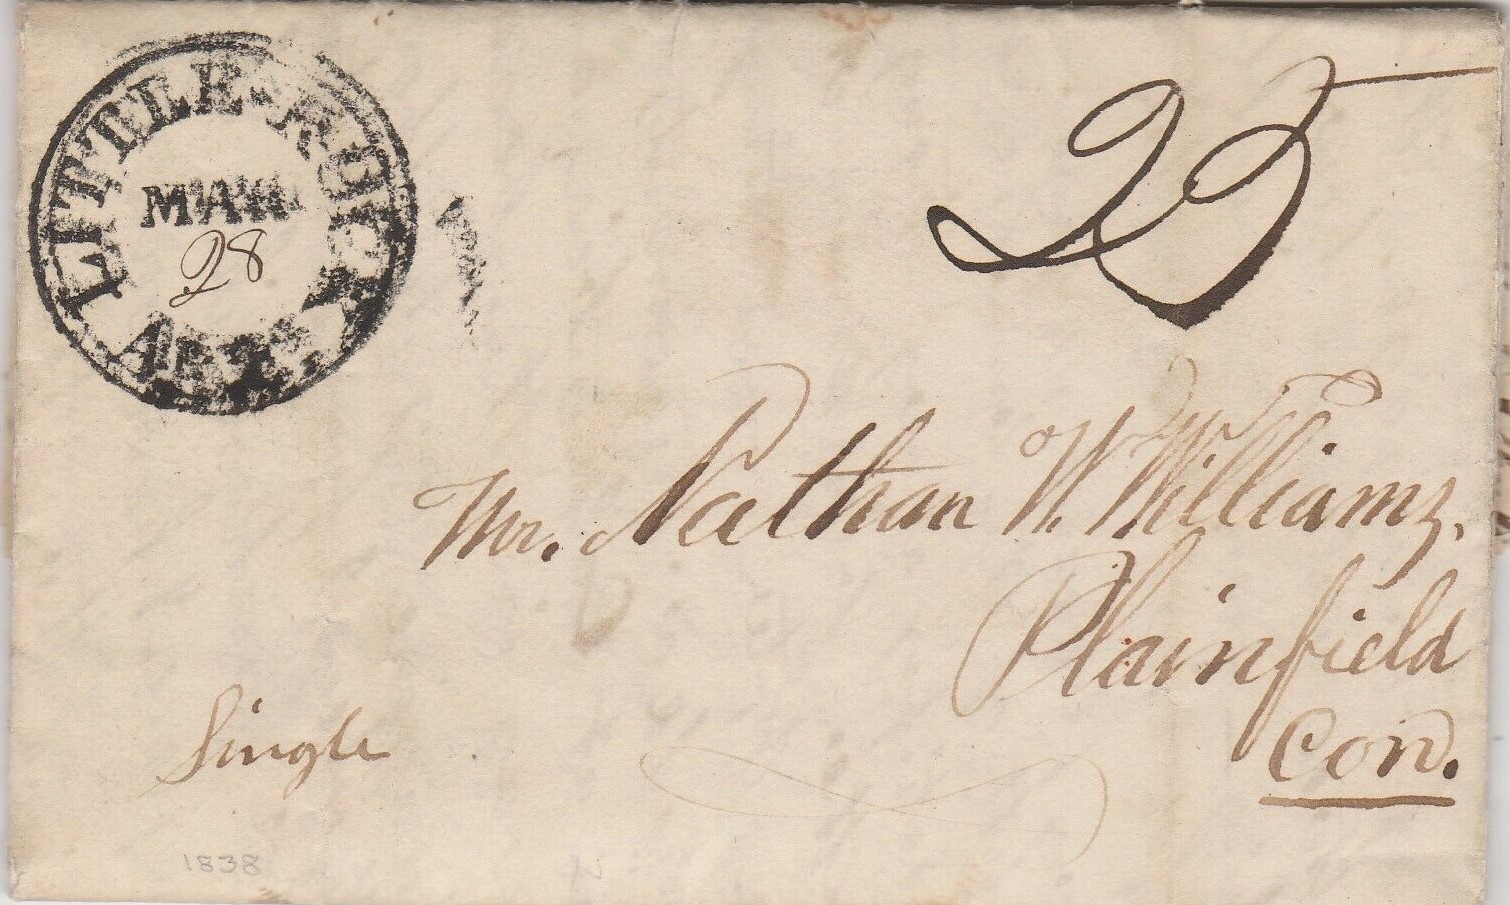 LITTLE-ROCK
MAR
28
ARK.
25
Mr. Nathan W. Williams.
Plainfield
Con.
Single
1838
N